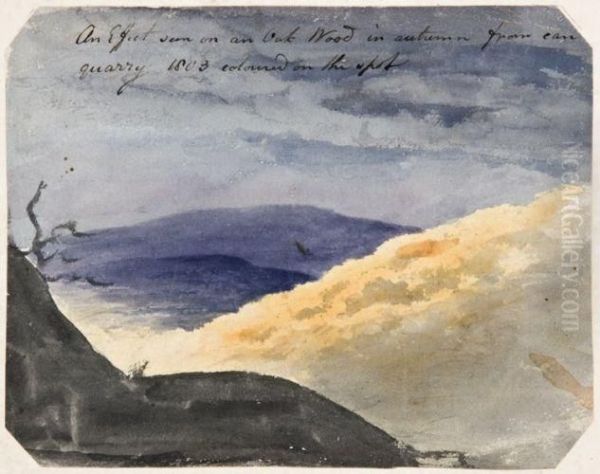 An Effect seen on an Oak Wood in autumn from can
quarry 1803 coloured on the spot
NiceArtGallery.com